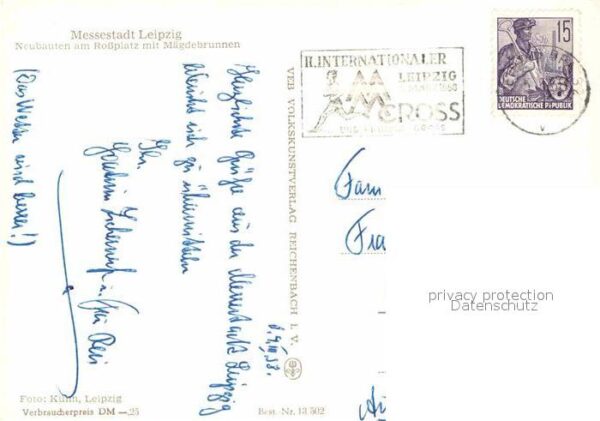 Messestadt Leipzig
Neubauten am Roßplatz mit Mägdebrunnen
II. INTERNATIONALER
LEIPZIG
CROSS
15
DEUTSCHE
DEMOKRATISCHE REPUBLIK
VEB VOLKSKUNSTVERLAG REICHENBACH I. V.
Herzlichste Grüße aus der Messestadt Leipzig
sich zu übermitteln
Ihr
(Das Wetter wird besser!)
Fam
Fra
privacy protection
Datenschutz
Foto: Kühn, Leipzig
Verbraucherpreis DM —,25
Best. Nr. 13 502